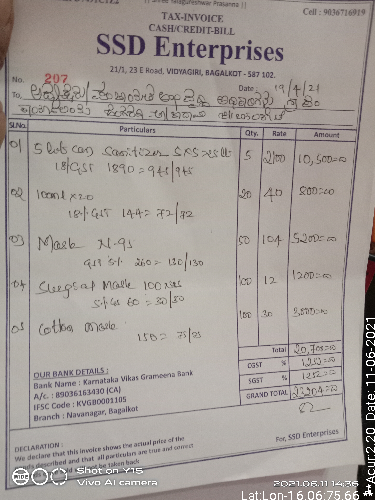 || Shri Jagajyothi Prasanna ||
Cell : 9036716919
TAX-INVOICE
CASH/CREDIT-BILL
SSD Enterprises
21/1, 23 E Road, VIDYAGIRI, BAGALKOT - 587 102.
No. 207
Date: 19/4/21
To,
Sl.No. Particulars Qty. Rate Amount
01 5 Lit can Sanitizer 5x5=25 Lit 5 2100 10,500=00
18% GST 1890 = 945/945
02 100ml x 20 20 40 800=00
18% GST 144 = 72/72
03 Mask N-95 50 104 5200=00
GST 5% 260 = 130/130
04 Surgical Mask 100 100 12 1200=00
5% GST 60 = 30/30
05 Cotton Mask 100 30 3,000=00
150 = 75/75
Total 20,700=00
CGST % 1252=00
SGST % 1252=00
GRAND TOTAL 23204=00
OUR BANK DETAILS :
Bank Name : Karnataka Vikas Grameena Bank
A/c. : 89036163430 (CA)
IFSC Code : KVGB0001105
Branch : Navanagar, Bagalkot
For, SSD Enterprises
DECLARATION :
We declare that this invoice shows the actual price of the
goods described and that all particulars are true and correct
be taken back
Shot on Y15
Vivo AI camera
2021.06.11 14:36
Lat:Lon-16.06:75.66
**Acur2.20 Date: 11-06-2021